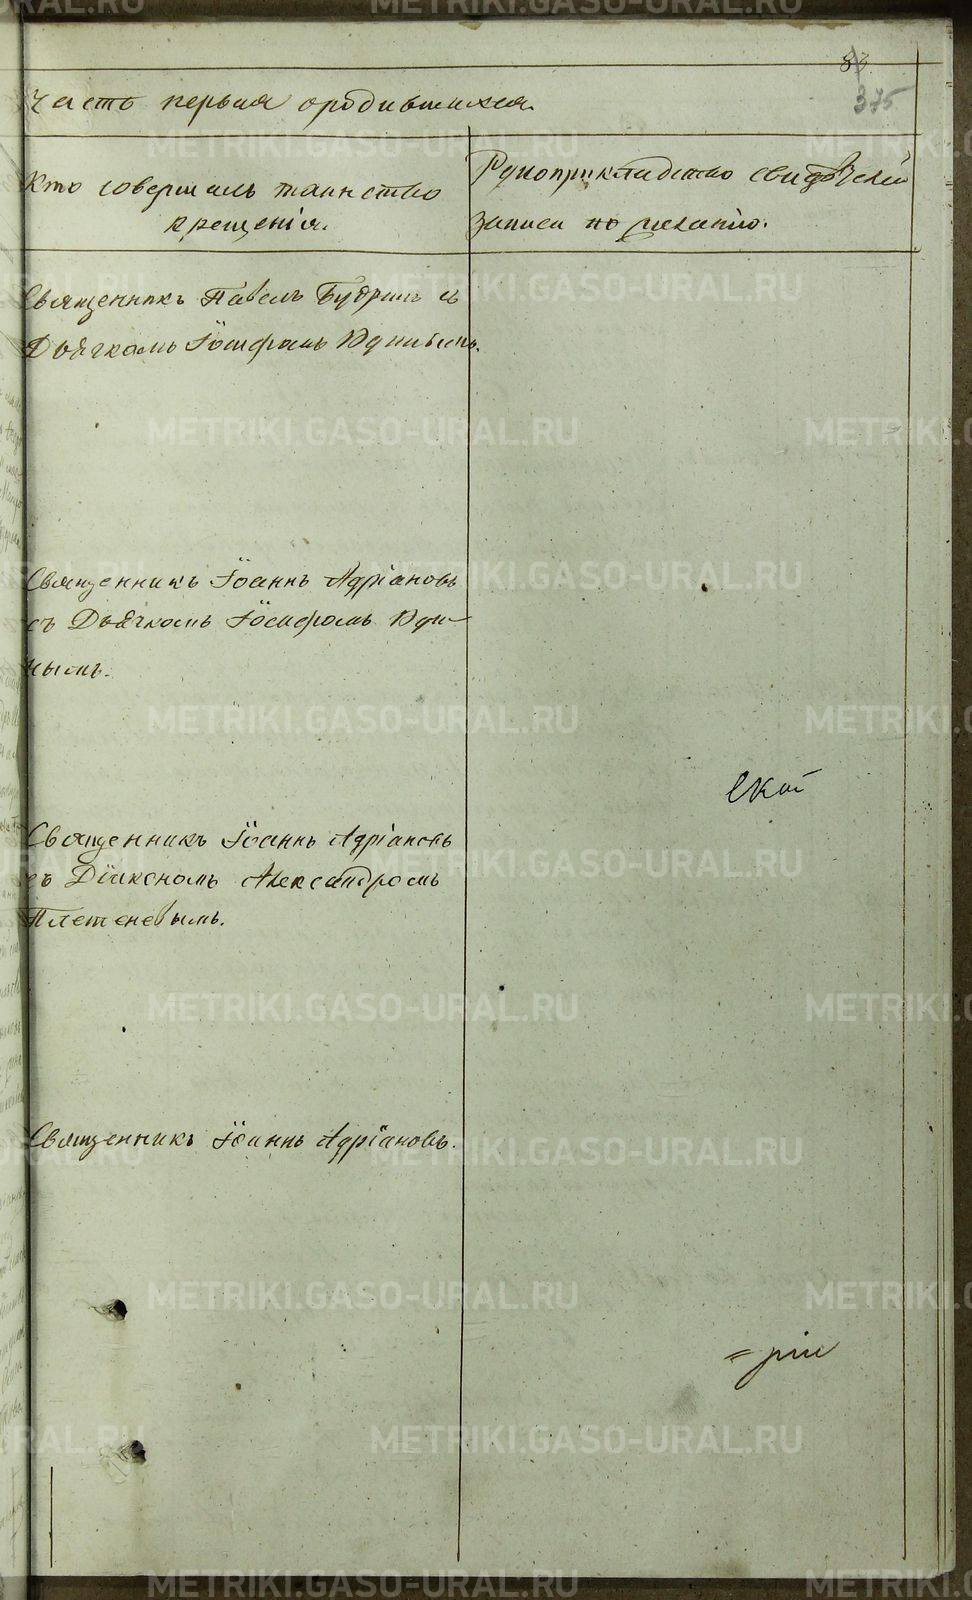 83
375
Часть первая о родившихся.
Кто совершалъ таинство
крещенія.
Рукоприкладство свидѣтелей
записи по желанію.
Священникъ Павелъ Будринъ съ
Дьячкомъ Іосифомъ
Священникъ Іоаннъ Адріановъ
съ Дьячкомъ Іосифомъ
нымъ.
Священникъ Іоаннъ Адріановъ
съ Діакономъ Александромъ
Плетеневымъ.
Священникъ Іоаннъ Адріановъ.
ской
METRIKI.GASO-URAL.RU